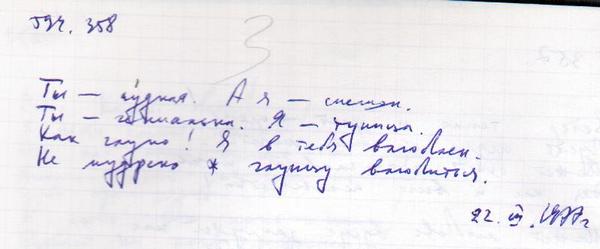 358
3
Ты — чу́дная. А я — смешон.
Ты — гениальна. Я — тупица.
Как глупо! Я в тебя влюблен.
Не мудрено ж глупцу влюбиться.
22. III. 1977 г